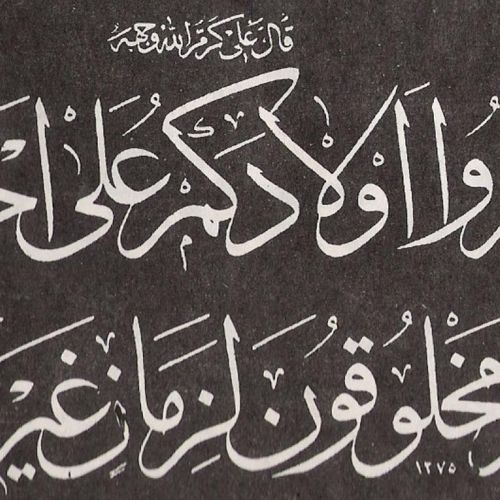 قال على كرم الله وجهه
روا اولادكم على ا
مخلوقون لزمان غير
١٢٧٥